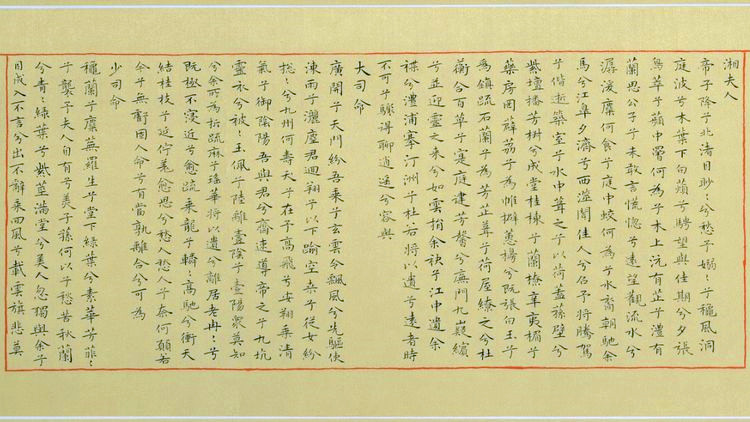 湘夫人
帝子降兮北渚目眇〻兮愁予嫋〻兮穐風洞
庭波兮木葉下白薠兮騁望與佳期兮夕張
鳥萃兮蘋中罾何為兮木上沅有芷兮澧有
蘭思公子兮未敢言慌惚兮遠望觀流水兮
潺湲麋何食兮庭中蛟何為兮水裔朝馳余
馬兮江皋夕濟兮西澨聞佳人兮召予將騰駕
兮偕逝築室兮水中葺之兮以荷蓋蓀壁兮
紫壇播芳椒兮成堂桂棟兮蘭橑辛夷楣兮
藥房罔薜荔兮為帷擗蕙櫋兮既張白玉兮
為鎮疏石蘭兮為芳芷葺兮荷屋繚之兮杜
蘅合百草兮寔庭建芳馨兮廡門九嶷繽
兮並迎靈之來兮如雲捐余袂兮江中遺余
褋兮澧浦搴汀洲兮杜若將以遺兮遠者時
不可兮驟得聊逍遙兮容與
大司命
廣開兮天門紛吾乘兮玄雲兮飄風兮先驅使
涷雨兮灑塵君迴翔兮以下踰空桑兮從女紛
揔〻兮九州何壽夭兮在予高飛兮安翔乘清
氣兮御陰陽吾與君兮齋速導帝之兮九坑
靈衣兮被〻玉佩兮陸離壹陰兮壹陽眾莫知
兮余所為折疏麻兮瑤華將以遺兮離居老冉〻兮
既極不寖近兮愈疏乘龍兮轔〻高馳兮衝天
結桂枝兮延佇羌愈思兮愁人愁人兮奈何願若
今兮無虧固人命兮有當孰離合兮可為
少司命
穐蘭兮麋蕪羅生兮堂下綠葉兮素華芳菲〻
兮襲予夫人自有兮美子蓀何以兮愁苦秋蘭
兮青〻綠葉兮紫莖滿堂兮美人忽獨與余兮
目成入不言兮出不辭乘回風兮載雲旗悲莫